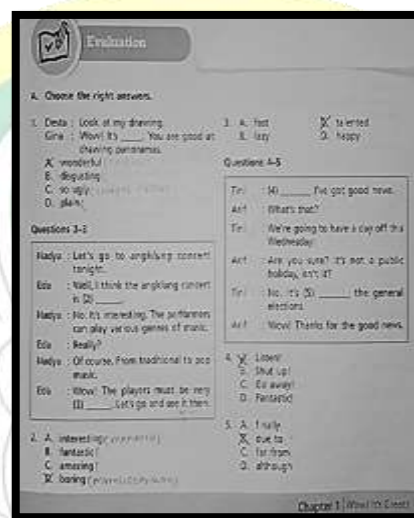 Evaluation
A. Choose the right answers.
1. Desta : Look at my drawing.
Gina : Wow! It's ____. You are good at
drawing panoramas.
A. wonderful
B. disgusting
C. so ugly
D. plain
Questions 2-3
Nadya : Let's go to angklung concert
tonight.
Eda : Well, I think the angklung concert
is (2) ____.
Nadya : No. It's interesting. The performers
can play various genres of music.
Eda : Really?
Nadya : Of course. From traditional to pop
music.
Eda : Wow! The players must be very
(3) ____. Let's go and see it then.
2. A. interesting
B. fantastic
C. amazing
D. boring
3. A. fast
B. lazy
C. talented
D. happy
Questions 4-5
Tini : (4) ____ I've got good news.
Arif : What's that?
Tini : We're going to have a day off this
Wednesday.
Arif : Are you sure? It's not a public
holiday, isn't it?
Tini : No. It's (5) ____ the general
elections.
Arif : Wow! Thanks for the good news.
4. A. Listen!
B. Shut up!
C. Go away!
D. Fantastic!
5. A. finally
B. due to
C. far from
D. although
Chapter 1 Wow! It's Great!